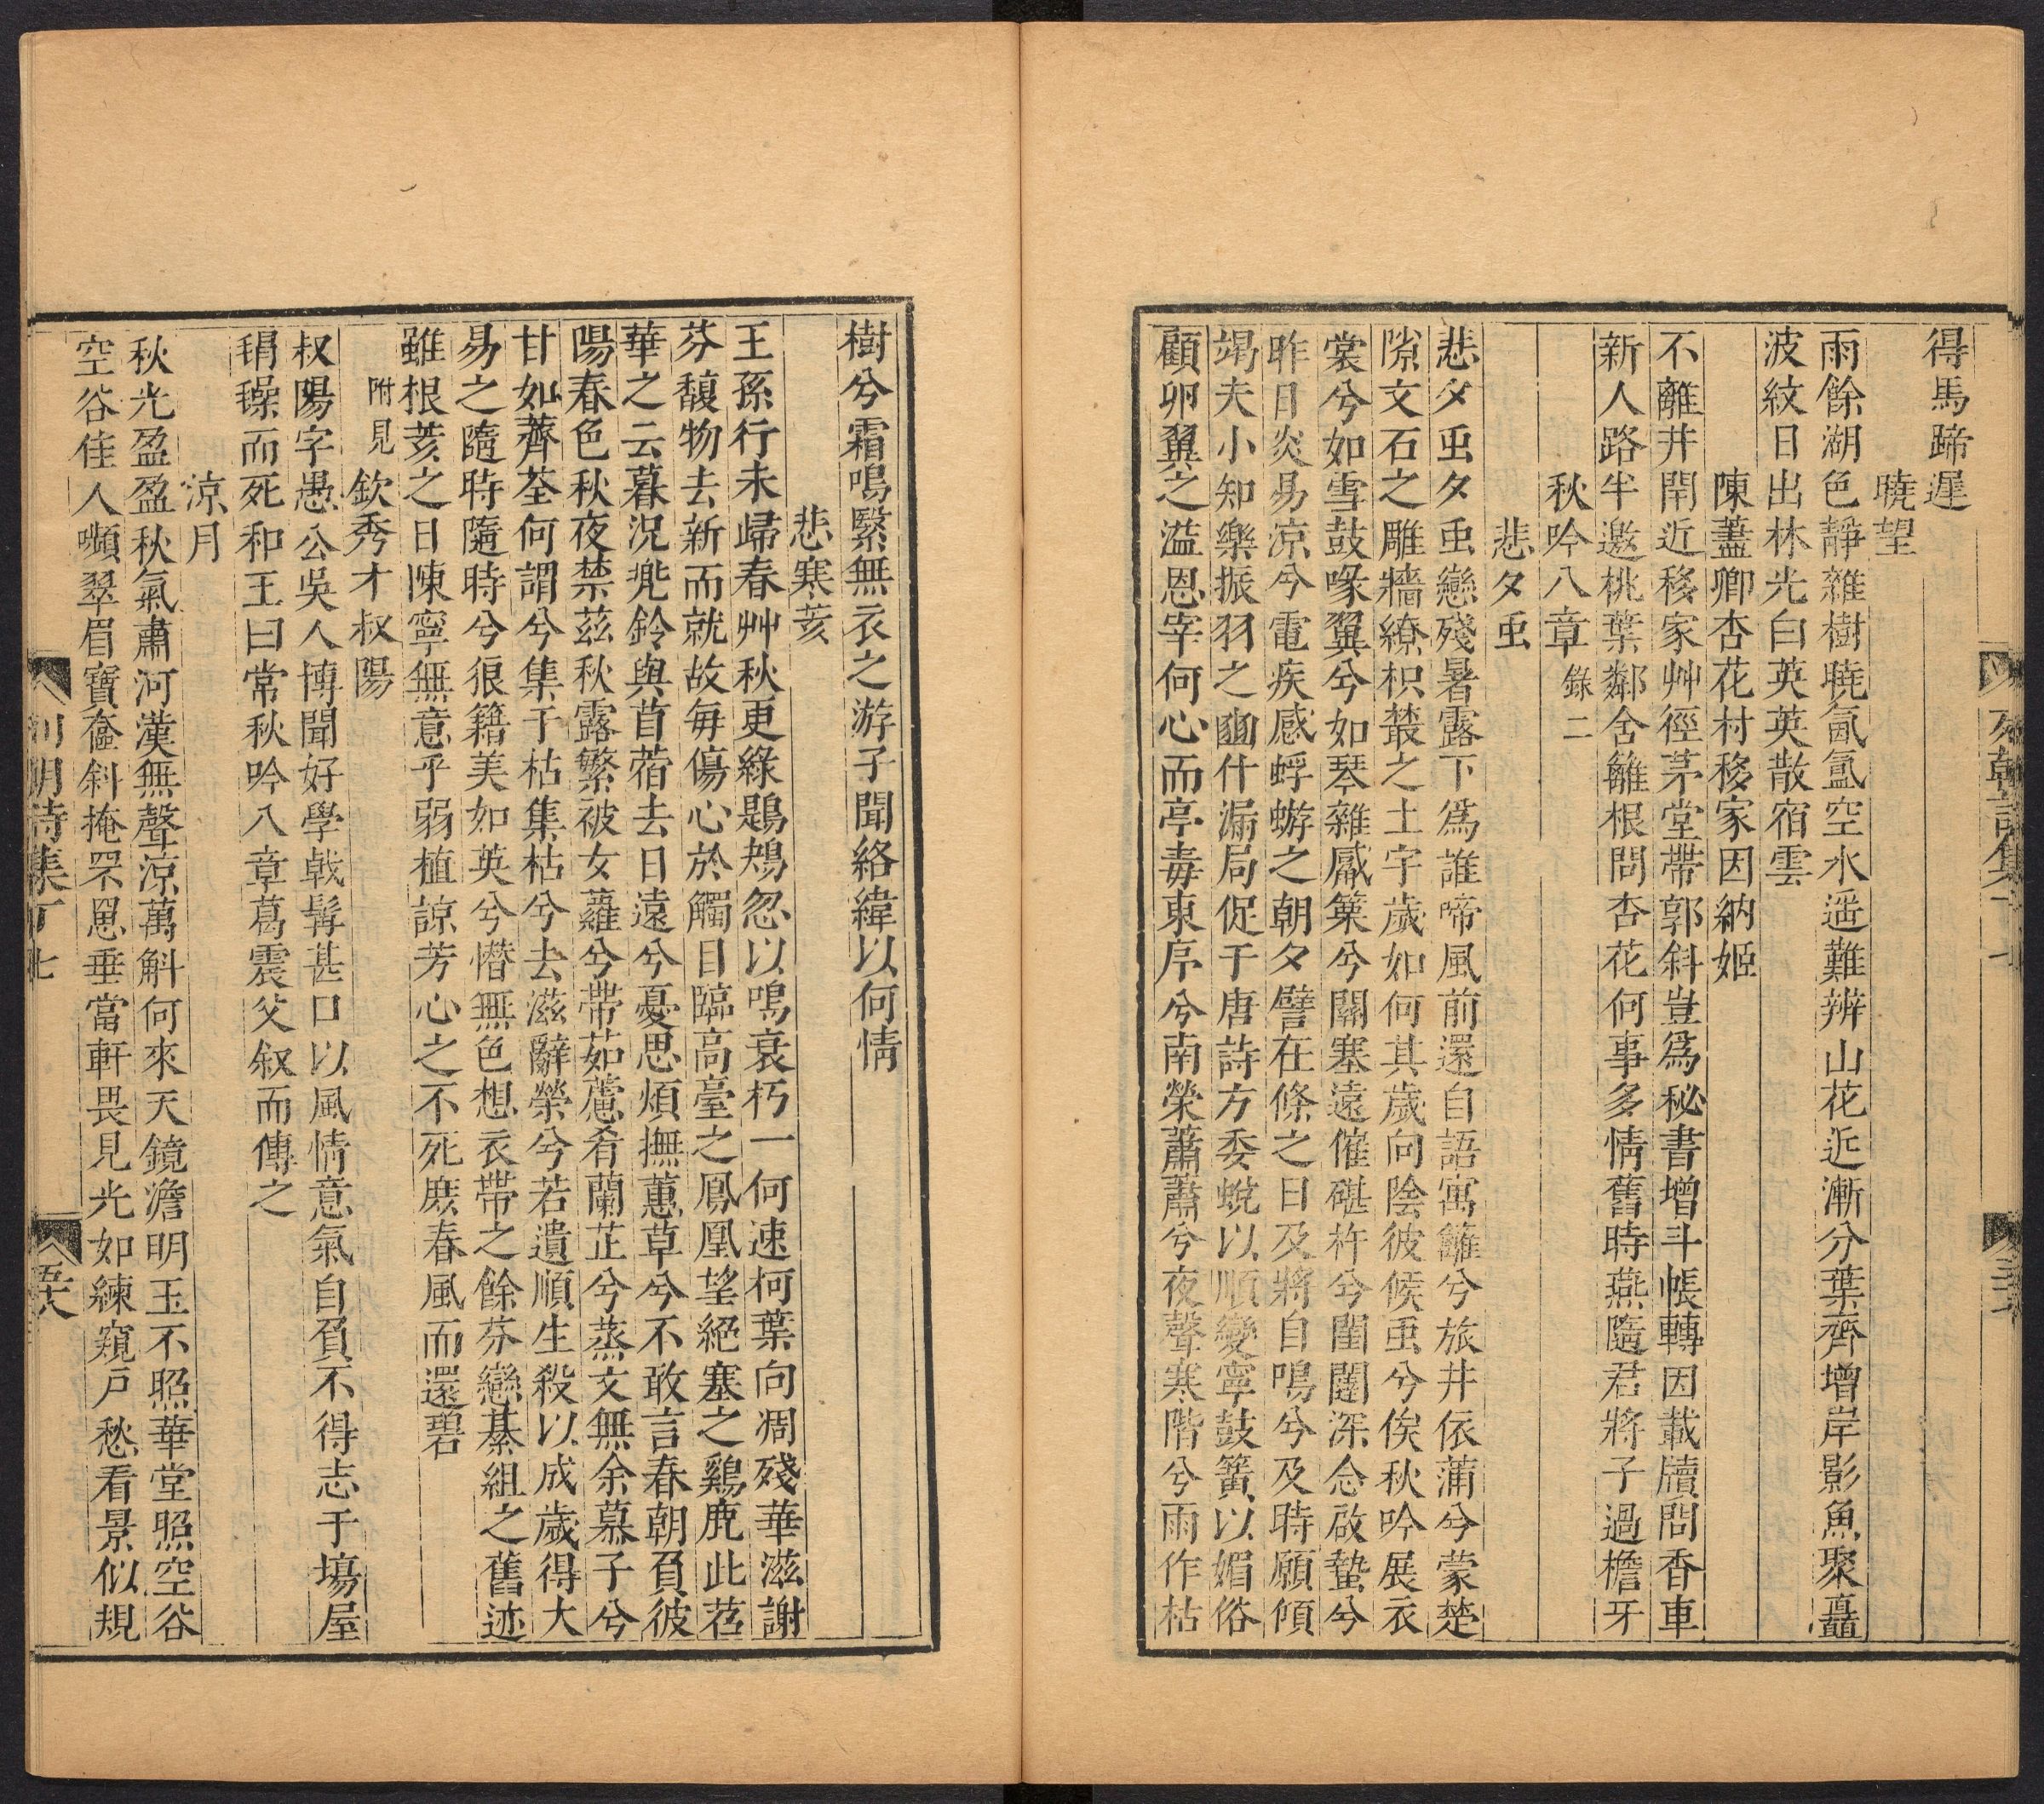 得馬蹄遲
曉望
雨餘湖色靜雜樹曉氤氳空水遥難辨山花近漸分葉齊增岸影魚聚矗
波紋日出林光白英英散宿雲
陳蓋卿杏花村移家因納姬
不離井閈近移家艸徑茅堂帶郭斜豈爲秘書增斗帳轉因載牘問香車
新人路半邀桃葉鄰舍籬根問杏花何事多情舊時燕隨君將子過檐牙
秋吟八章錄二
悲夕䖝
悲夕䖝夕䖝戀殘暑露下爲誰啼風前還自語寓籬兮旅井依蒲兮蒙楚
隙文石之雕牆繚枳蕟之土宇歲如何其歲向陰彼候䖝兮俟秋吟展衣
裳兮如雪鼓喙翼兮如琴雜觱篥兮關塞遠催碪杵兮閨闥深念啟蟄兮
昨日炎易凉兮電疾感蜉蝣之朝夕譬在條之日及將自鳴兮及時願傾
竭夫小知樂振羽之豳什漏局促于唐詩方委蛻以順變寧鼓簧以媚俗
顧卵翼之溢恩宰何心而亭毒東序兮南榮蕭蕭兮夜聲寒階兮雨作枯
樹兮霜鳴繄無衣之游子聞絡緯以何情
悲寒荄
王孫行未歸春艸秋更綠鶗鴂忽以鳴衰朽一何速柯葉向凋殘華滋謝
芬馥物去新而就故毎傷心於觸目臨高臺之鳳凰望絕塞之鷄鹿此苕
華之云暮況兠鈴與苜蓿去日遠兮憂思煩撫蕙草兮不敢言春朝負彼
陽春色秋夜禁茲秋露繁被女蘿兮帶茹藘肴蘭芷兮蒸文無余慕子兮
甘如薺荃何謂兮集于枯集枯兮去滋辭榮兮若遺順生殺以成歲得大
易之隨時隨時兮很籍美如英兮憯無色想衣帶之餘芬戀綦組之舊迹
雖根荄之日陳寧無意乎弱植諒芳心之不死庶春風而還碧
附見欽秀才叔陽
叔陽字愚公吳人博聞好學戟髯甚口以風情意氣自負不得志于塲屋
狷躁而死和王曰常秋吟八章葛震父叙而傳之
涼月
秋光盈盈秋氣肅河漢無聲涼萬斛何來天鏡澹明玉不照華堂照空谷
空谷佳人嚬翠眉寶奩斜掩罘罳垂當軒畏見光如練窺戸愁看景似規
列朝詩集丁七